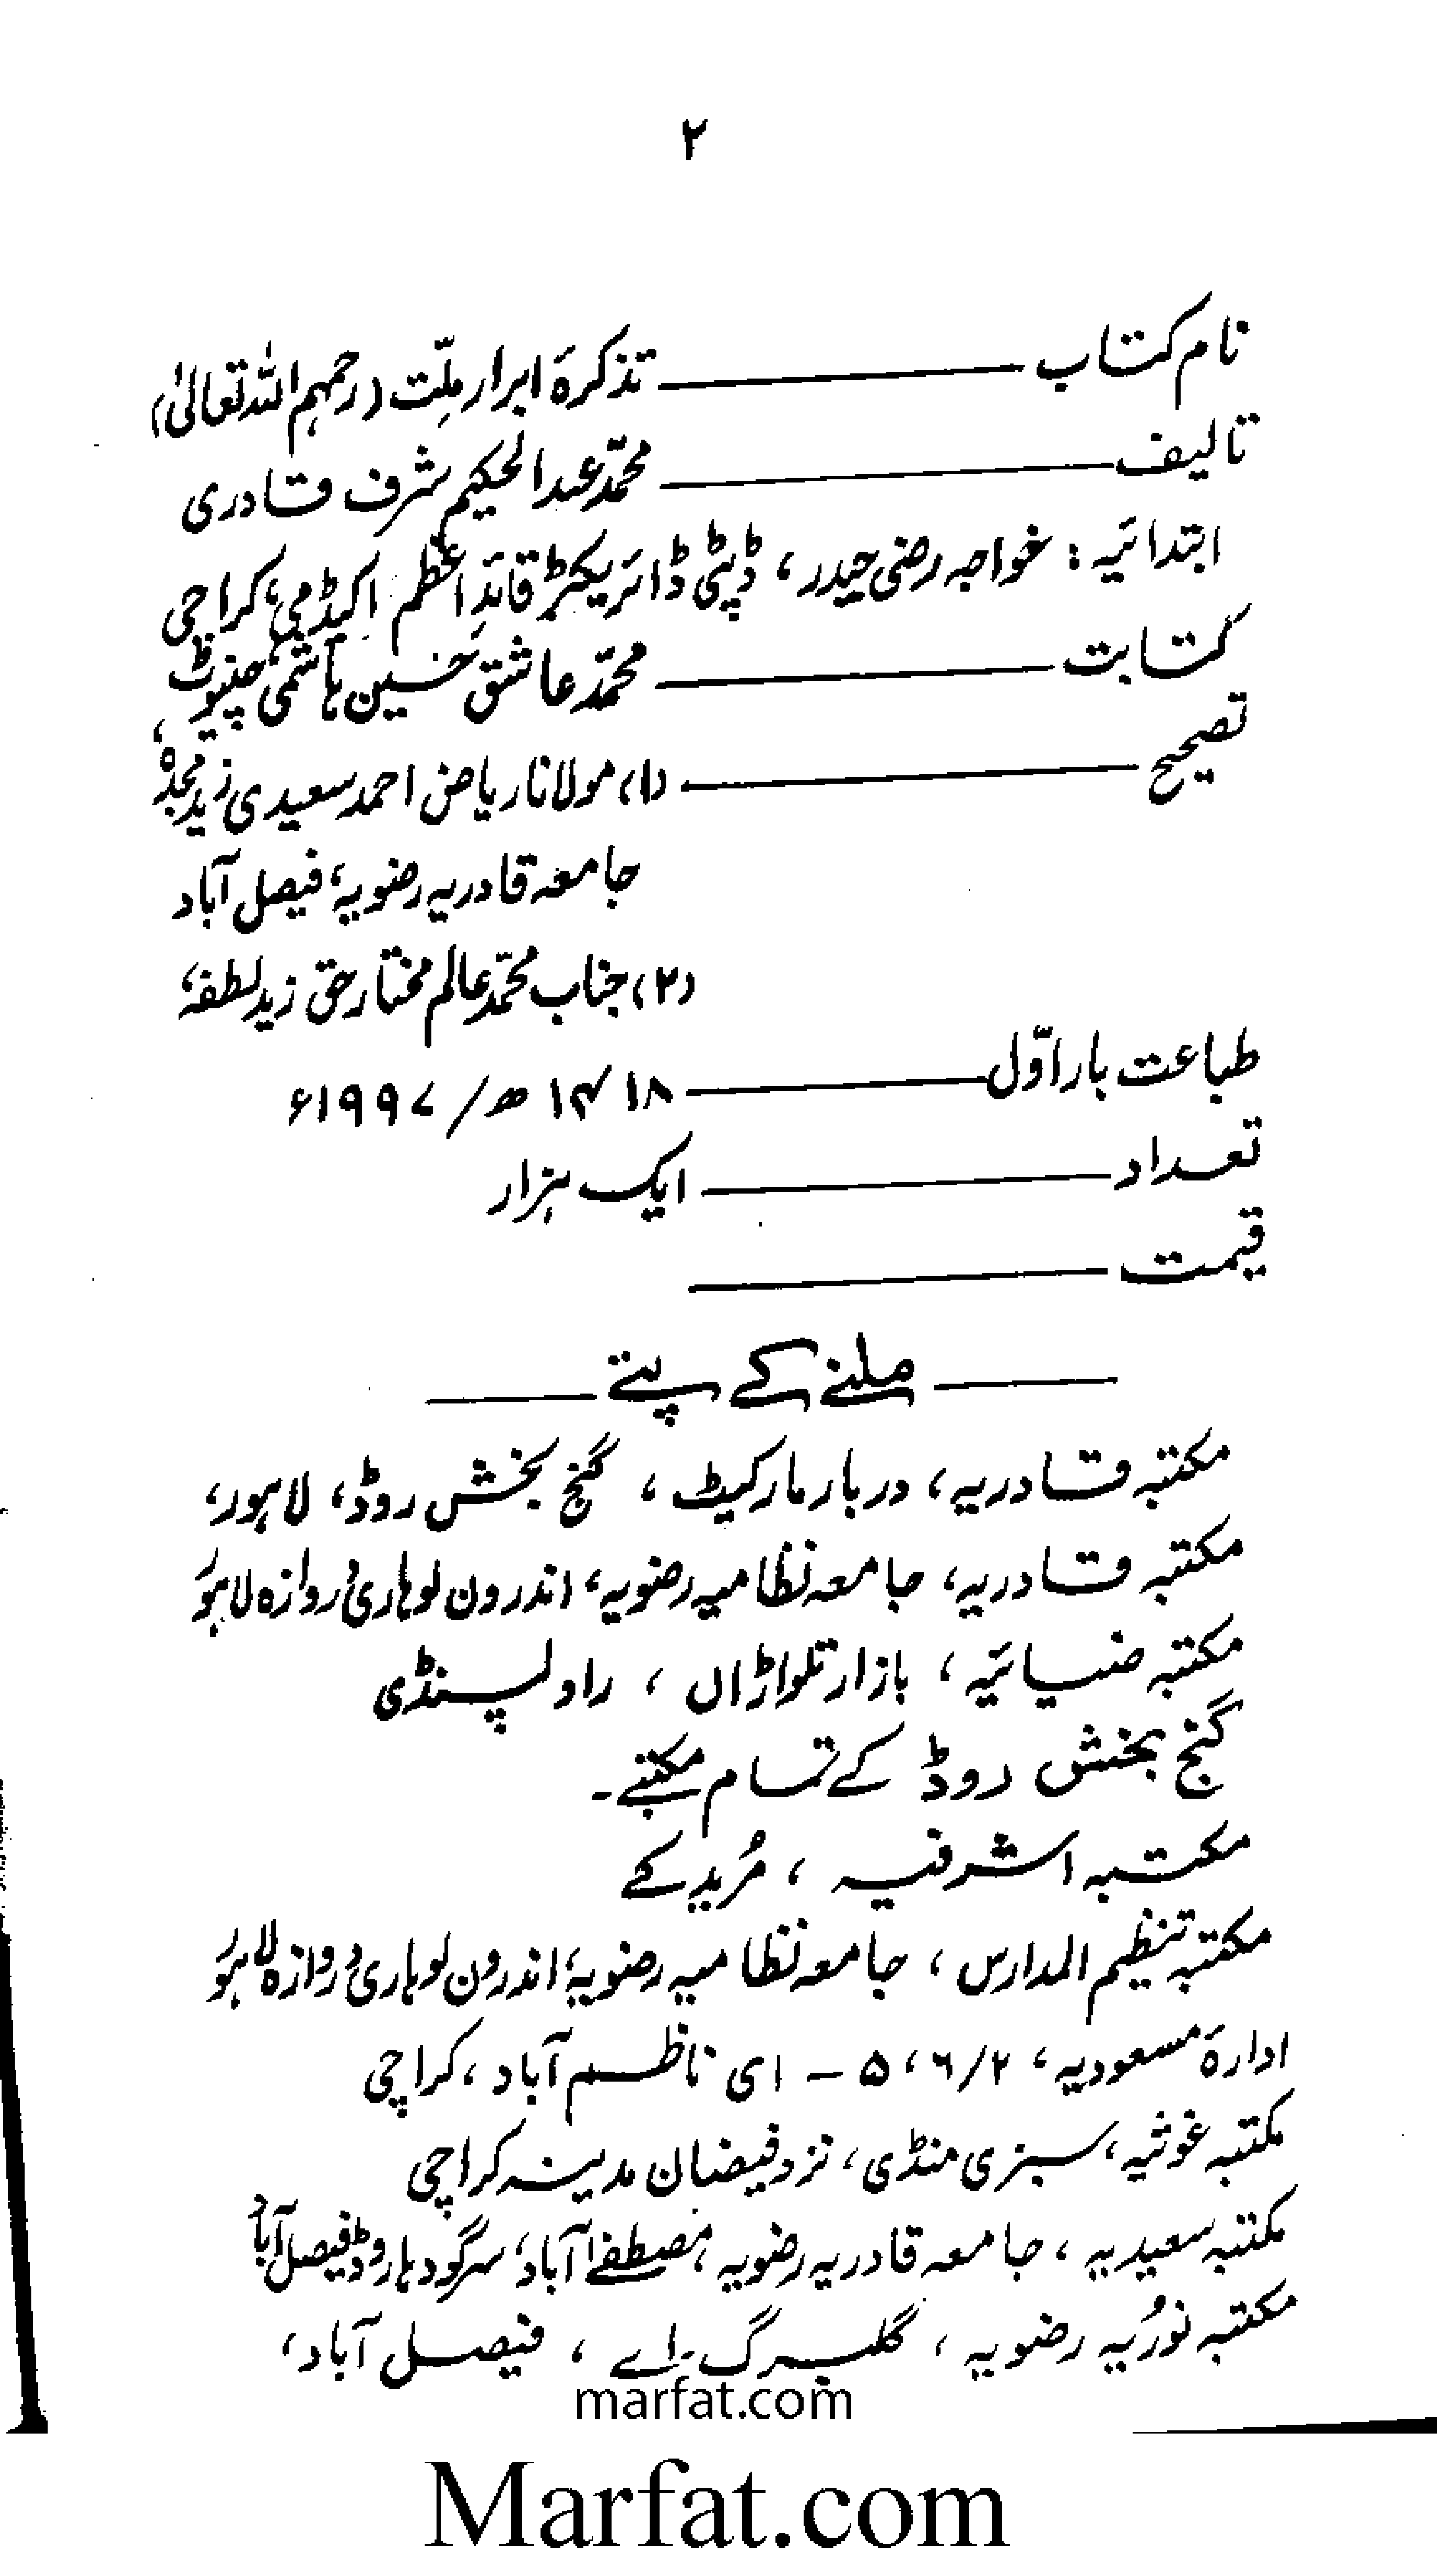 ۲
نام کتاب ــــــــ تذکرۂ ابرار ملّت (رحمہم اللہ تعالیٰ)
تالیف ــــــــ محمّد عبدالحکیم شرف قادری
ابتدائیہ : خواجہ رضی حیدر، ڈپٹی ڈائریکٹر قائدِ اعظم اکیڈمی، کراچی
کتابت ــــــــ محمّد عاشق حسین ہاشمی، چنیوٹ
تصحیح ــــــــ (۱) مولانا ریاض احمد سعیدی زید مجدہ،
جامعہ قادریہ رضویہ، فیصل آباد
(۲) جناب محمّد عالم مختار حق زید لطفہ،
طباعت بار اوّل ــــــــ ۱۴۱۸ھ / ۱۹۹۷ء
تعداد ــــــــ ایک ہزار
قیمت ــــــــ
ــــــــ ملنے کے پتے ــــــــ
مکتبہ قادریہ، دربار مارکیٹ، گنج بخش روڈ، لاہور،
مکتبہ قادریہ، جامعہ نظامیہ رضویہ، اندرون لوہاری دروازہ لاہور
مکتبہ ضیائیہ، بازار تلواڑاں، راولپنڈی
گنج بخش روڈ کے تمام مکتبے۔
مکتبہ اشرفیہ، مُریدکے
مکتبہ تنظیم المدارس، جامعہ نظامیہ رضویہ، اندرون لوہاری دروازہ لاہور
ادارۂ مسعودیہ، ۶/۲، ۵ - ای ناظم آباد، کراچی
مکتبہ غوثیہ، سبزی منڈی، نزد فیضان مدینہ کراچی
مکتبہ سعیدیہ، جامعہ قادریہ رضویہ، مصطفےٰ آباد، سرگودہا روڈ فیصل آباد
مکتبہ نورُیہ رضویہ، گلبرگ۔اے، فیصل آباد،
marfat.com
Marfat.com